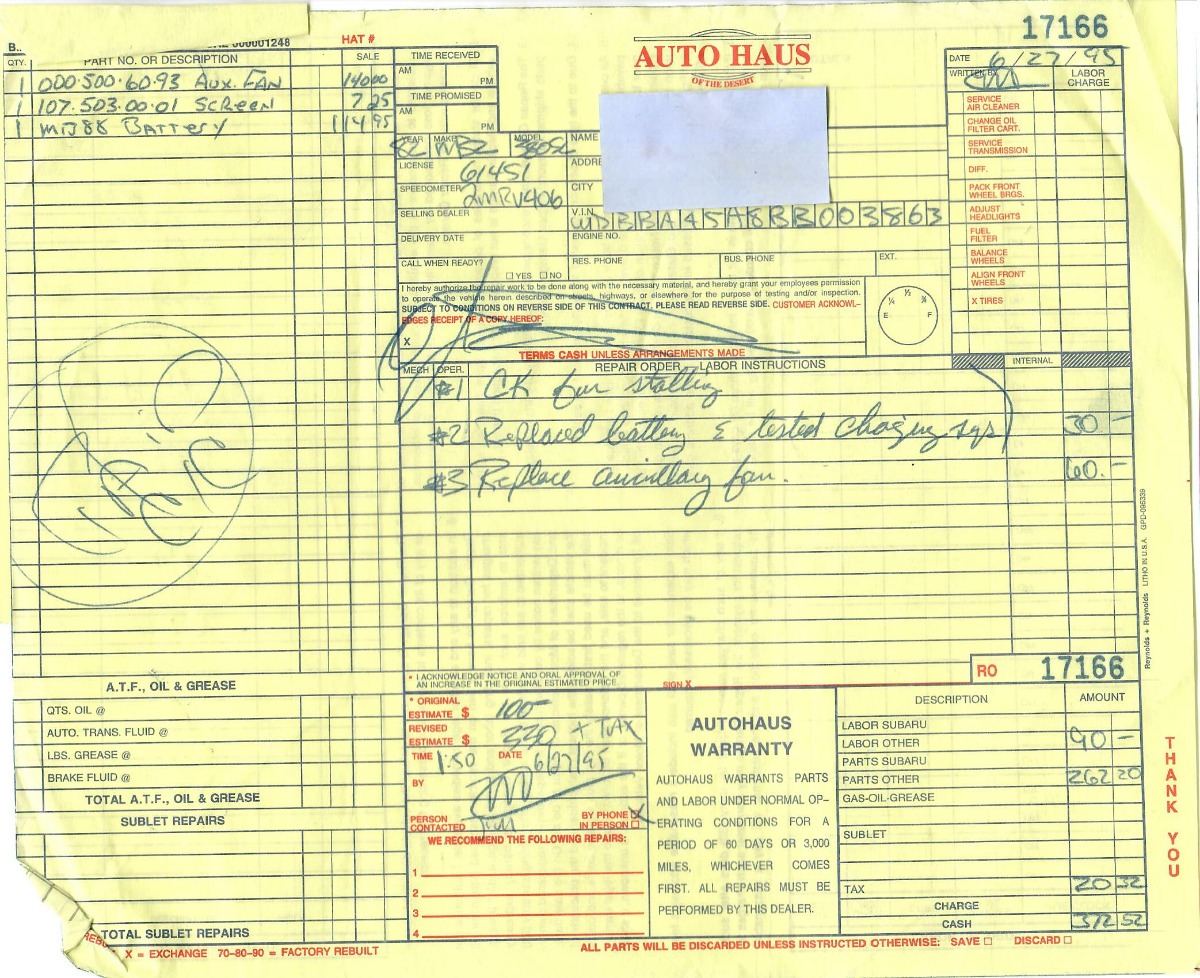 17166
000001248
HAT #
QTY. PART NO. OR DESCRIPTION SALE
1 000.500.60.93 Aux. FAN 140 00
1 107.503.00.01 Screen 7 25
1 MB88 Battery 114 95
TIME RECEIVED
AM PM
TIME PROMISED
AM PM
AUTO HAUS
OF THE DESERT
DATE 6/27/95
WRITTEN BY
LABOR CHARGE
SERVICE AIR CLEANER
CHANGE OIL FILTER CART.
SERVICE TRANSMISSION
DIFF.
PACK FRONT WHEEL BRGS.
ADJUST HEADLIGHTS
FUEL FILTER
BALANCE WHEELS
ALIGN FRONT WHEELS
X TIRES
YEAR MAKE MODEL
82 MBZ 380SL
NAME
LICENSE 61451
ADDRE
SPEEDOMETER 2MRV406
CITY
SELLING DEALER
V.I.N. WDBBA45A8BB003863
DELIVERY DATE
ENGINE NO.
CALL WHEN READY?
☐ YES ☐ NO
RES. PHONE BUS. PHONE EXT.
I hereby authorize the repair work to be done along with the necessary material, and hereby grant your employees permission
to operate the vehicle herein described on streets, highways, or elsewhere for the purpose of testing and/or inspection.
SUBJECT TO CONDITIONS ON REVERSE SIDE OF THIS CONTRACT. PLEASE READ REVERSE SIDE. CUSTOMER ACKNOWL-
EDGES RECEIPT OF A COPY HEREOF:
X
E ¼ ½ ¾ F
TERMS CASH UNLESS ARRANGEMENTS MADE
MECH OPER. REPAIR ORDER – LABOR INSTRUCTIONS INTERNAL
#1 CK for stalling
#2 Replaced battery & tested charging sys 30 –
#3 Replace auxillary fan. 60. –
PAID
* I ACKNOWLEDGE NOTICE AND ORAL APPROVAL OF
AN INCREASE IN THE ORIGINAL ESTIMATED PRICE.
SIGN X
RO 17166
A.T.F., OIL & GREASE
QTS. OIL @
AUTO. TRANS. FLUID @
LBS. GREASE @
BRAKE FLUID @
TOTAL A.T.F., OIL & GREASE
SUBLET REPAIRS
TOTAL SUBLET REPAIRS
* ORIGINAL ESTIMATE $ 100–
REVISED ESTIMATE $ 330 + TAX
TIME 1:50 DATE 6/27/95
BY
PERSON CONTACTED Jim
BY PHONE ☑
IN PERSON ☐
WE RECOMMEND THE FOLLOWING REPAIRS:
1
2
3
4
AUTOHAUS
WARRANTY
AUTOHAUS WARRANTS PARTS
AND LABOR UNDER NORMAL OP-
ERATING CONDITIONS FOR A
PERIOD OF 60 DAYS OR 3,000
MILES, WHICHEVER COMES
FIRST. ALL REPAIRS MUST BE
PERFORMED BY THIS DEALER.
DESCRIPTION AMOUNT
LABOR SUBARU
LABOR OTHER 90 –
PARTS SUBARU
PARTS OTHER 262 20
GAS-OIL-GREASE
SUBLET
TAX 20 32
CHARGE
CASH 372 52
THANK YOU
Reynolds + Reynolds LITHO IN U.S.A. GPD-096339
X = EXCHANGE 70-80-90 = FACTORY REBUILT
ALL PARTS WILL BE DISCARDED UNLESS INSTRUCTED OTHERWISE: SAVE ☐ DISCARD ☐